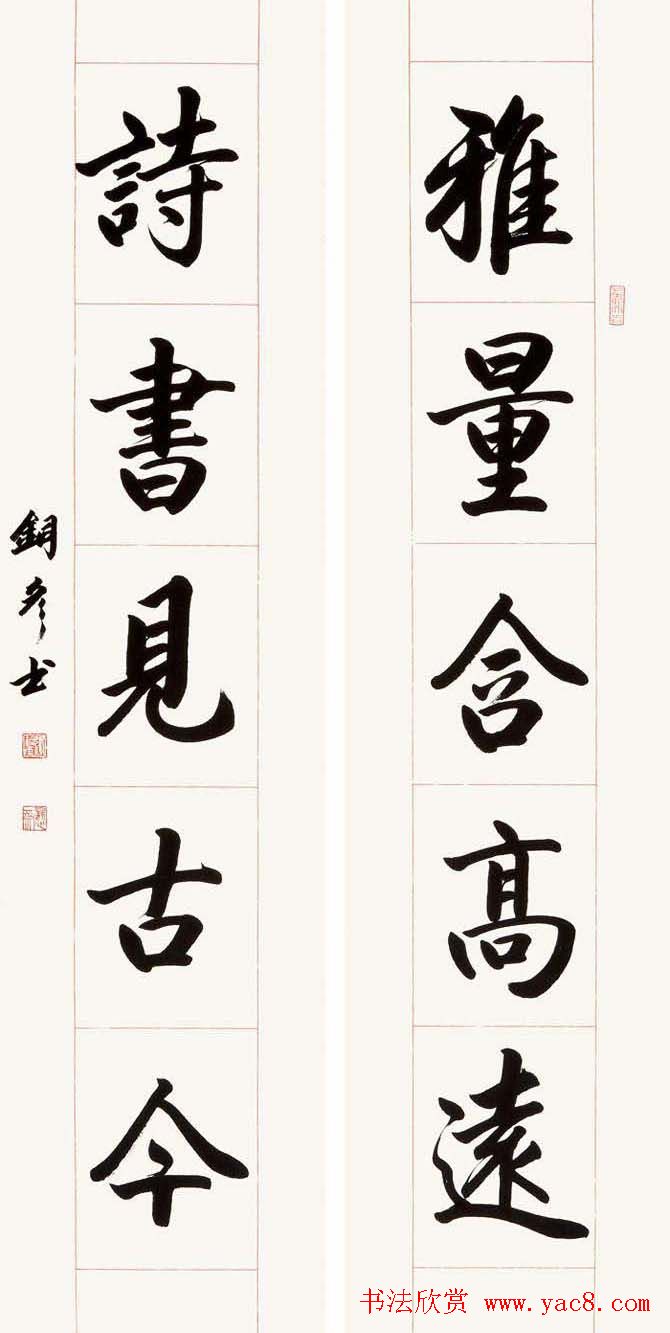 雅量含高遠
詩書見古今
銅彦士
书法欣赏 www.yac8.com